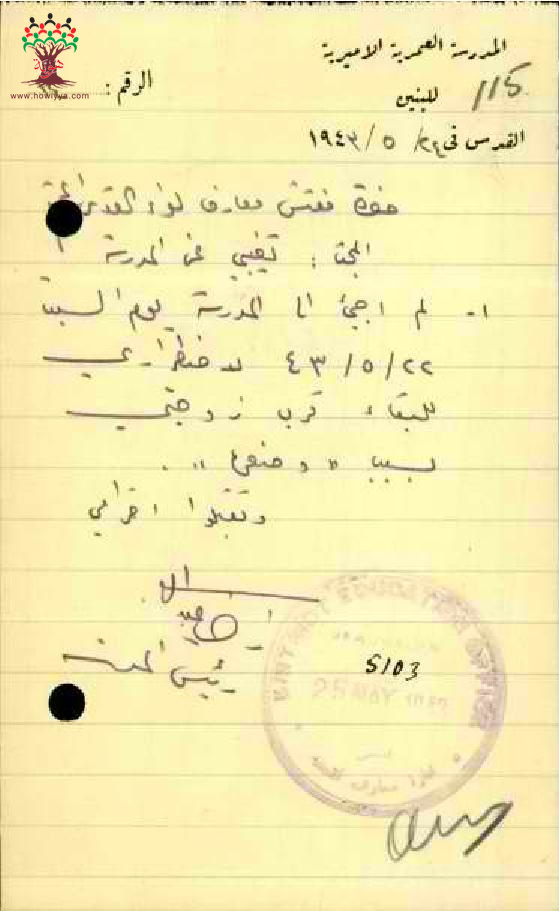 www.howiyya.com
المدرسة العمرية الاميرية
للبنين 115
الرقم :
القدس في ٢٤/ ٥ /١٩٤٣
حضرة مفتش معارف لواء القدس
البحث : تغيبي عن المدرسة
١- لم اجئ الى المدرسة يوم السبت
٢٢/ ٥ /٤٣ لاضطراري
للبقاء قرب زوجتي
بسبب " وضعها " .
وتقبلوا احترامي
رئيس
DISTRICT EDUCATION OFFICE
JERUSALEM
25 MAY 1943
5103
معارف